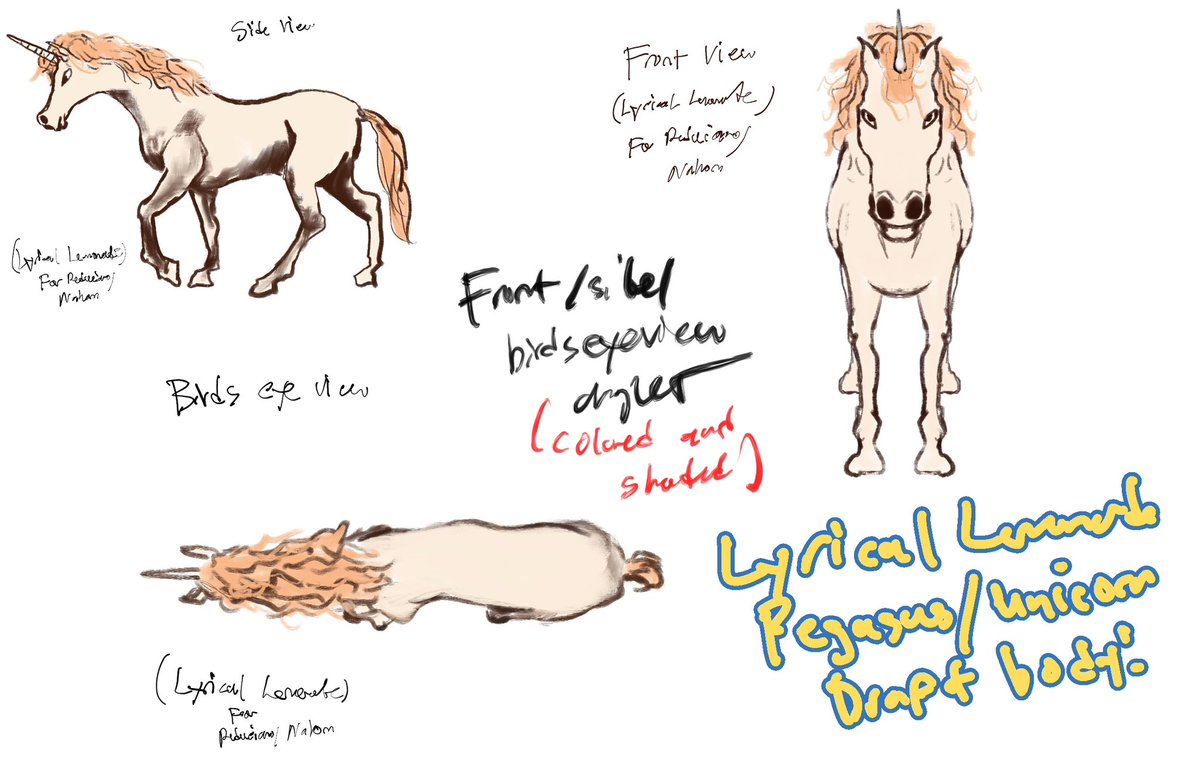 Side View
Front View
(Lyrical Lemonade)
For
Nahom
(Lyrical Lemonade)
For
Nahom
Front/side/
birdseyeview
Birds eye view
(colored and
shaded)
Lyrical Lemonade
Pegasus/Unicorn
Draft body:
(Lyrical Lemonade)
For
Nahom